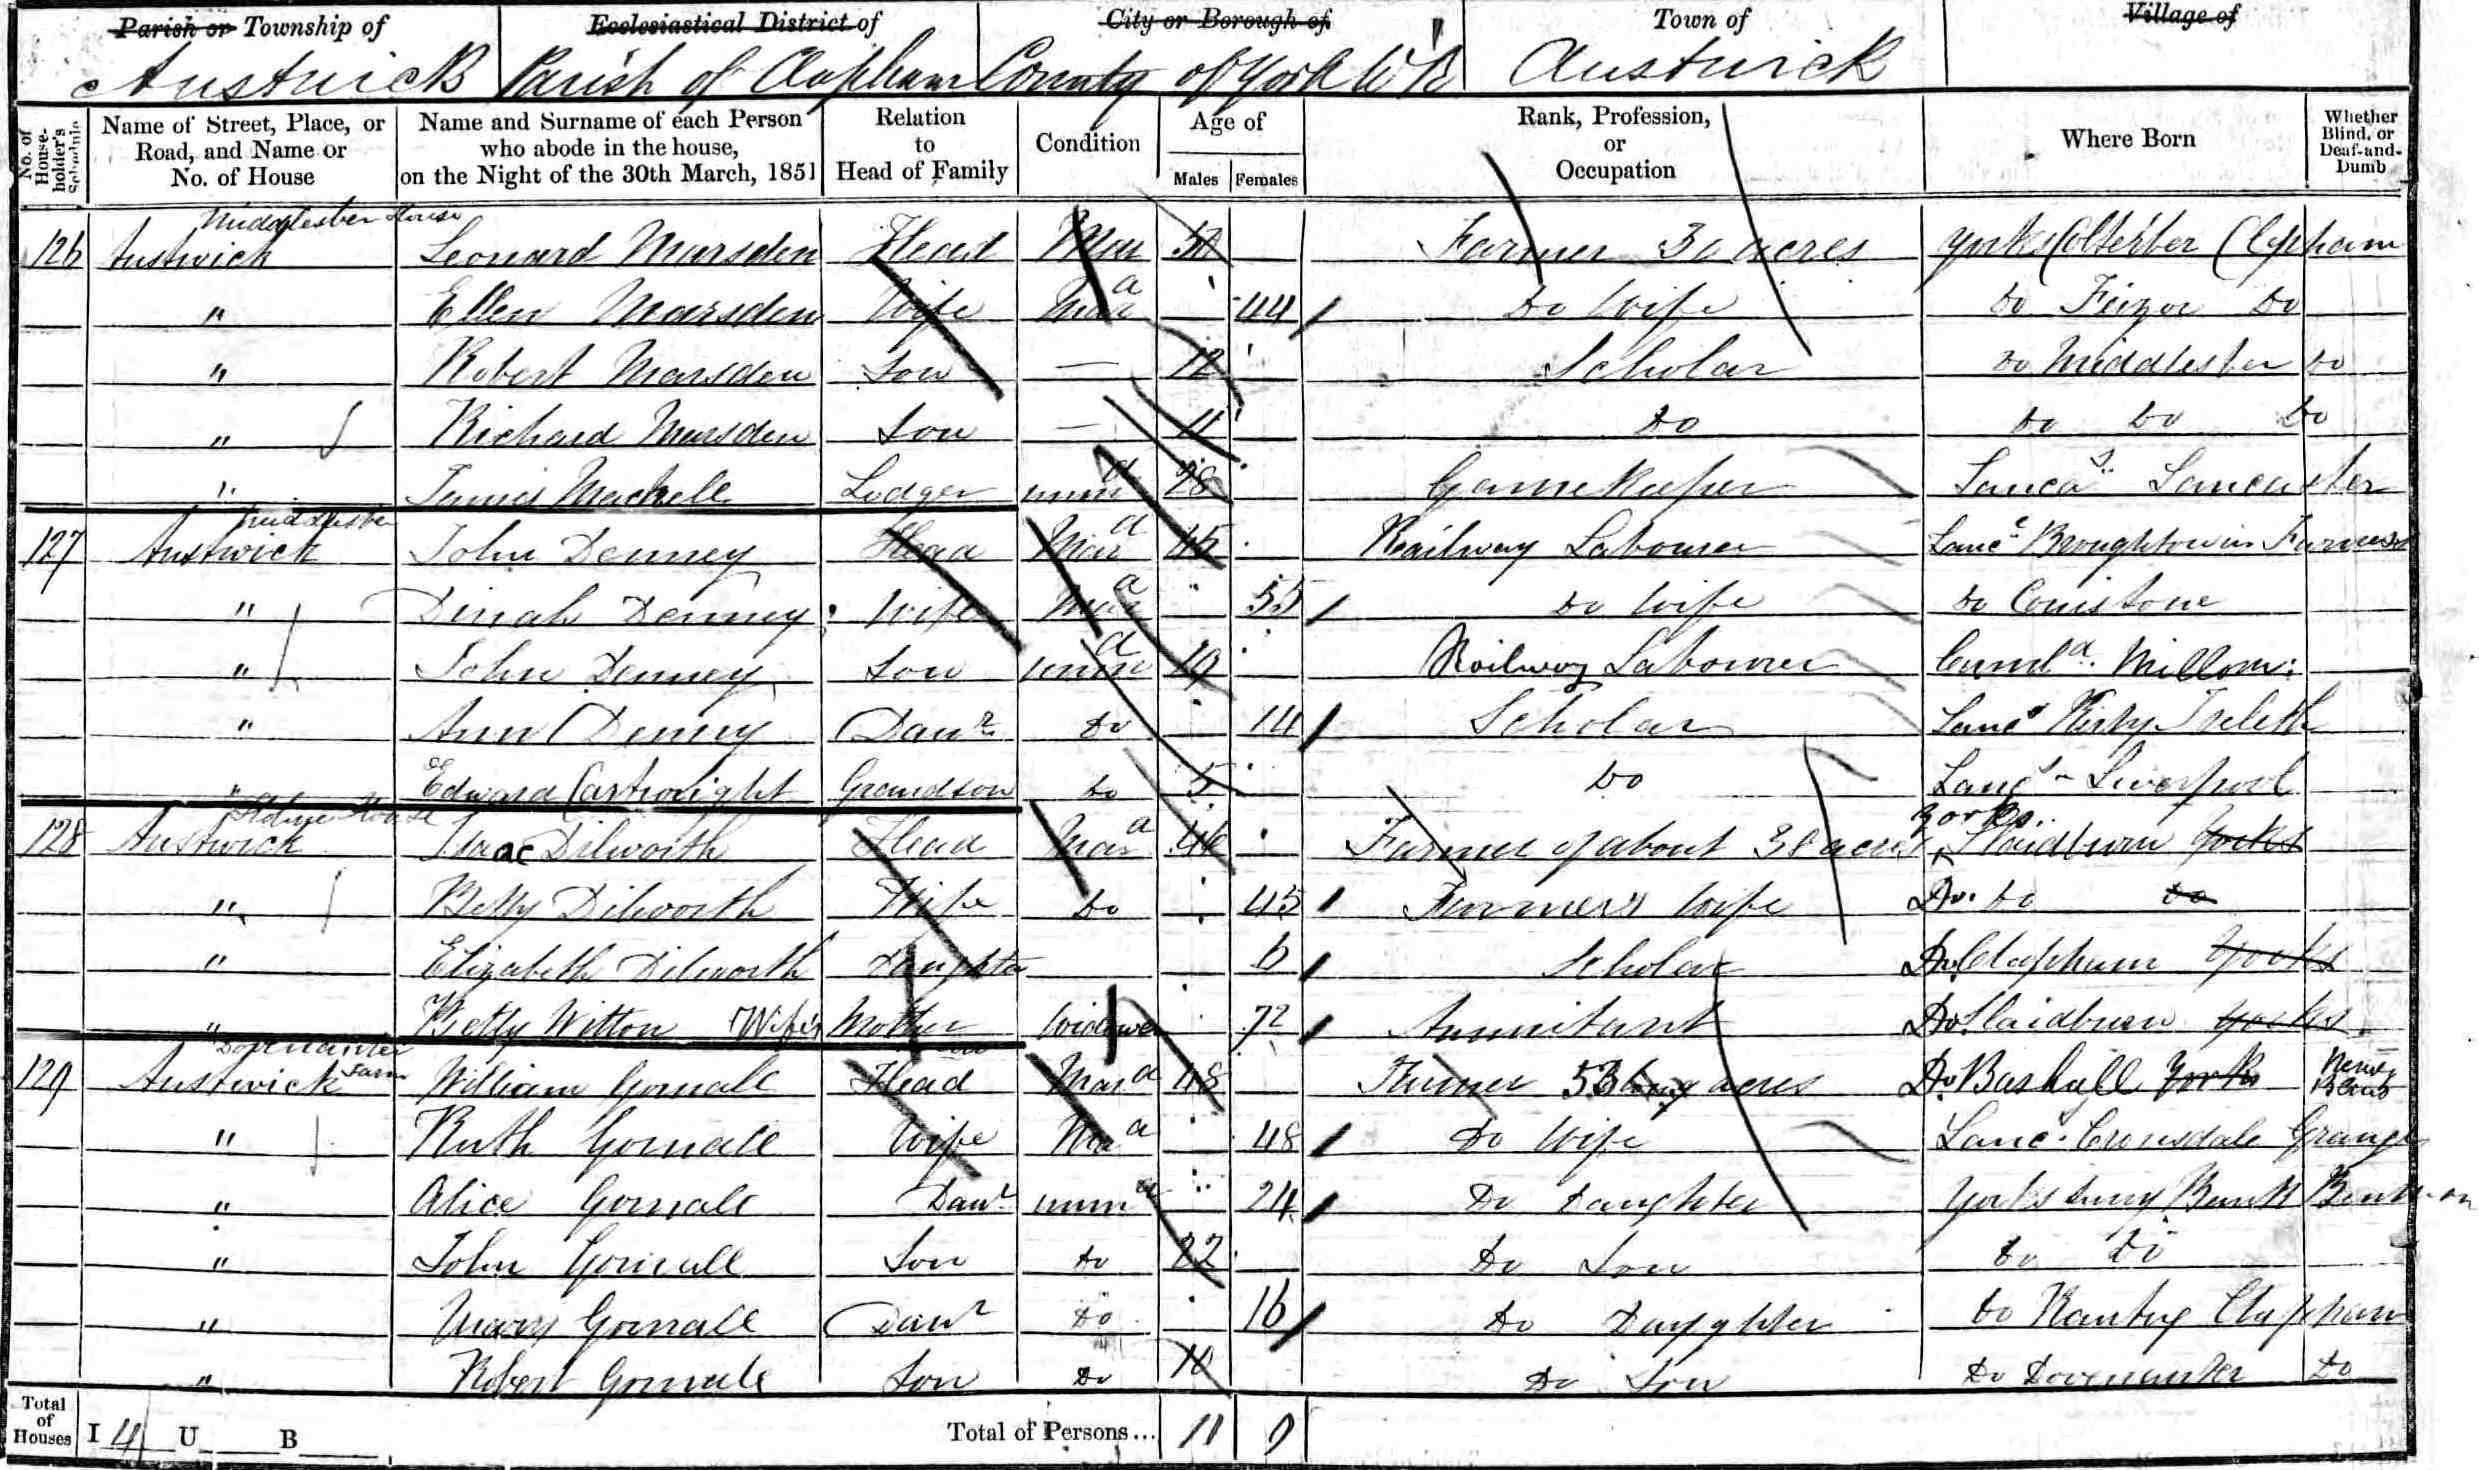 Parish or Township of Ecclesiastical District of City or Borough of Town of Village of
Austwick Parish of Clapham County of York W R Austwick
No. of House-holder's Schedule Name of Street, Place, or Road, and Name or No. of House Name and Surname of each Person who abode in the house, on the Night of the 30th March, 1851 Relation to Head of Family Condition Age of Males Females Rank, Profession, or Occupation Where Born Whether Blind, or Deaf-and-Dumb
Middlesber House
126 Austwick Leonard Marsden Head Mar Farmer 30 acres Yorks Clapham
" Ellen Marsden Wife Mar 44 Do Wife Do Feizor Do
" Robert Marsden Son — 12 Scholar Do Middlesber Do
" Richard Marsden Son — 11 Do Do Do Do
" James Machell Lodger unm 28 Game Keeper Lanca Lancaster
Middlesber
127 Austwick John Denney Head Mar 45 Railway Labourer Lanc Broughton in Furness
" Dinah Denney Wife Mar 55 Do Wife Do Conistone
" John Denney Son unm 19 Railway Labourer Cumd Millom
" Ann Denney Daur Do 14 Scholar Lanc Kirby Ireleth
" Edward Cartwright Grandson Do 5 Do Lanc Liverpool
House
128 Austwick Isaac Dilworth Head Mar 46 Farmer of about 38 acres Yorks. Slaidburn Yorks
" Betty Dilworth Wife Do 45 Farmer's Wife Do. Do Do
" Elizabeth Dilworth Daughter 6 Scholar Do. Clapham Yorks
" Betty Witton Wife's Mother Widow 72 Annuitant Do Slaidburn Yorks
Dovenanter Farm
129 Austwick William Gornall Head Mar 48 Farmer 53 acres Do Bashall Yorks
" Ruth Gornall Wife Mar 48 Do Wife Lanc. Grange
" Alice Gornall Daur unm 24 Do Daughter Yorks Bank Bentham
" John Gornall Son Do 22 Do Son Do Do
" Mary Gornall Daur Do 16 Do Daughter Do Clapham
" Robert Gornall Son Do 10 Do Son Do Dovenanter Do
Total of Houses I 4 U B Total of Persons... 11 9